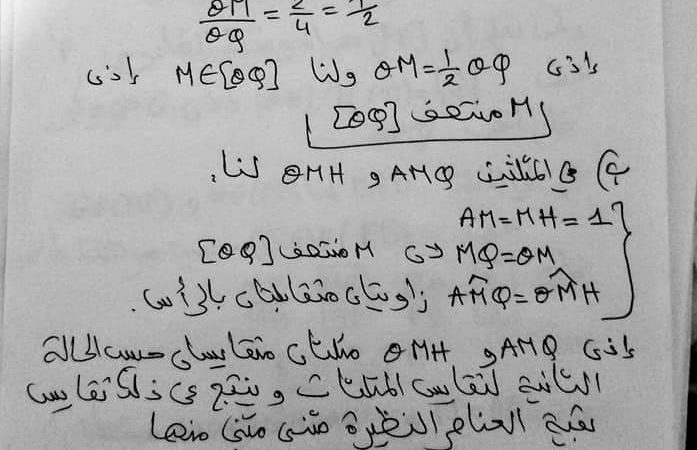 θM/θQ = 2/4 = 1/2
إذن θM=1/2 θQ ولنا M∈[θQ] إذن
M منتصف [θQ]
ب) في المثلثين AMQ و θMH لنا,
AM=MH=1
MQ=θM لأن M منتصف [θQ]
AM̂Q=θM̂H زاويتان متقابلتان بالرأس.
إذن AMQ و θMH مثلثان متقايسان حسب الحالة
الثانية لتقايس المثلثات و ينتج عن ذلك تقايس
بقية العناصر النظيرة مثنى مثنى منها